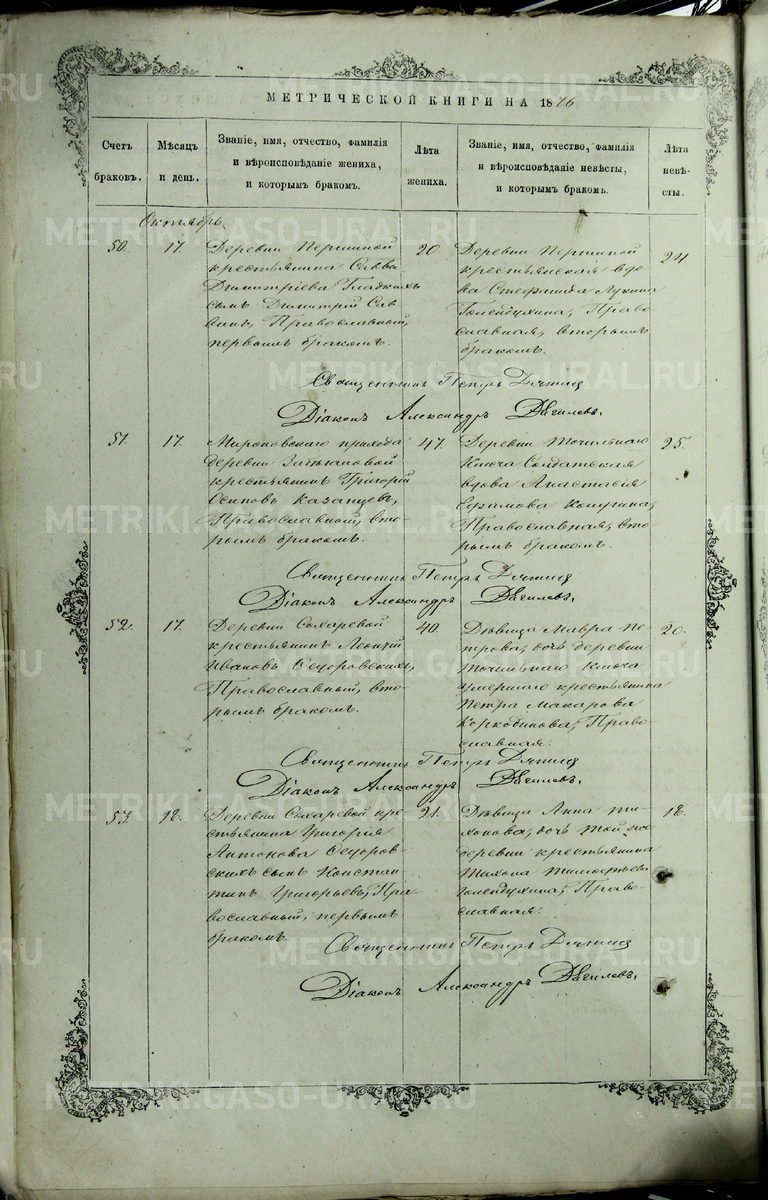 МЕТРИЧЕСКОЙ КНИГИ НА 1876
Счетъ браковъ.
Мѣсяцъ и день.
Званіе, имя, отчество, фамилія и вѣроисповѣданіе жениха, и которымъ бракомъ.
Лѣта жениха.
Званіе, имя, отчество, фамилія и вѣроисповѣданіе невѣсты, и которымъ бракомъ.
Лѣта невѣ-
сты.
Октябрь.
50.
17.
Деревни Першиной
крестьянина Савва
Димитріева Гладкихъ
сынъ Димитрій Сав-
винъ, Православный,
первымъ бракомъ.
20.
Деревни Першиной
крестьянская вдо-
ва Стефанида Лукина
Голендухина, Право-
славная, вторымъ
бракомъ.
24.
Священникъ Петръ
Діаконъ Александръ
51.
17.
Мироновскаго прихода
деревни
крестьянинъ Григорій
Осиповъ Казанцевъ,
Православный, вто-
рымъ бракомъ.
47.
Деревни Точильнаго
Ключа Солдатская
вдова Анастасія
Ефимова
Православная, вто-
рымъ бракомъ.
25.
Священникъ Петръ
Діаконъ Александръ
52.
17.
Деревни Сохаревой
крестьянинъ Леонтій
Ивановъ Ѳедоровскихъ,
Православный, вто-
рымъ бракомъ.
40.
Дѣвица Мавра Пе-
трова, дочь деревни
Точильнаго Ключа
умершаго крестьянина
Петра Макарова
Коркодинова, Право-
славная.
20.
Священникъ Петръ
Діаконъ Александръ
53.
18.
Деревни Сохаревой кре-
стьянина Григорія
Антонова Ѳедоров-
скихъ сынъ Констан-
тинъ Григорьевъ, Пра-
вославный, первымъ
бракомъ.
21.
Дѣвица Анна Ти-
хонова, дочь той-же
деревни крестьянина
Тихона Тимофѣева
Голендухина, Право-
славная.
18.
Священникъ Петръ
Діаконъ Александръ
METRIKI.GASO-URAL.RU